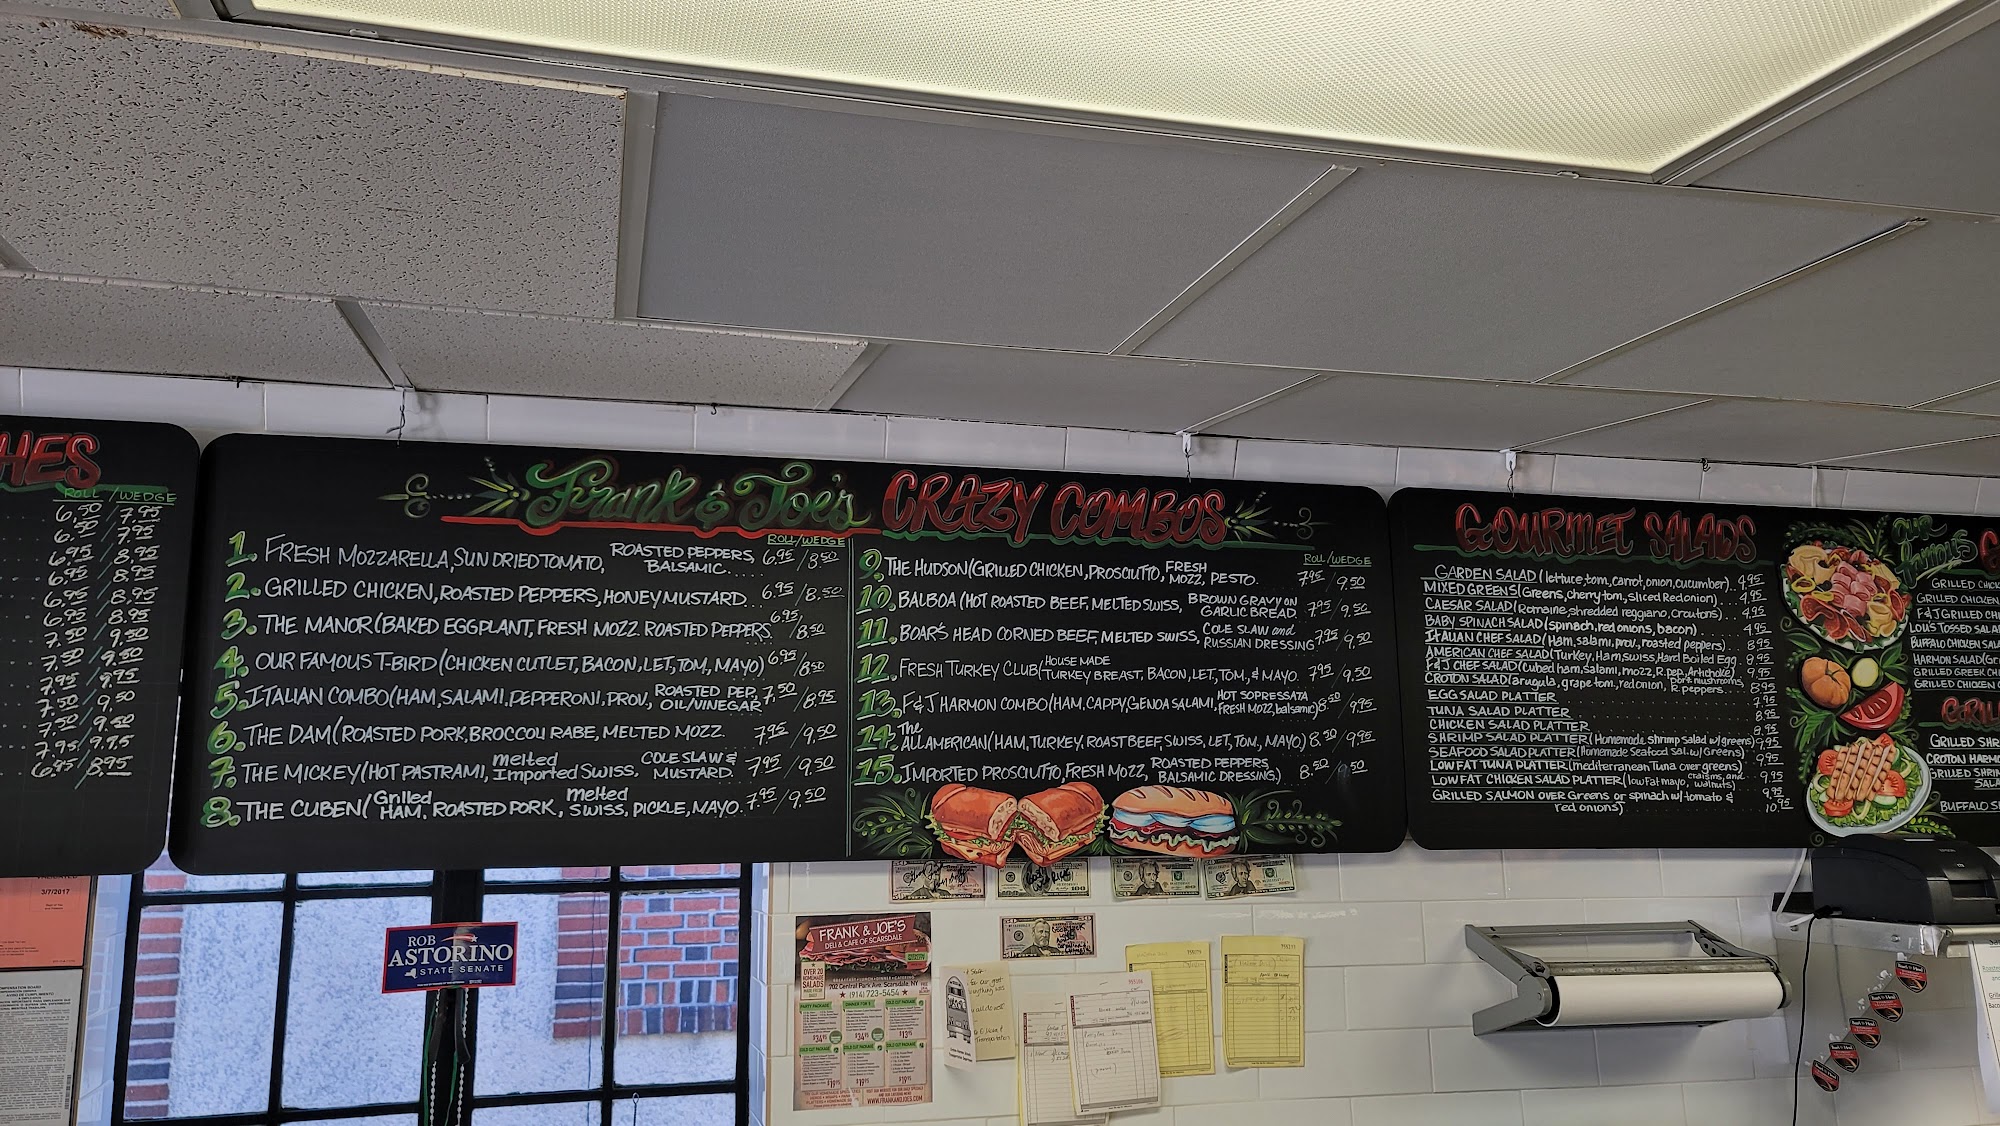 HES
ROLL / WEDGE
6.50 / 7.95
6.50 / 7.95
6.95 / 8.95
6.95 / 8.95
6.95 / 8.95
6.95 / 8.95
7.50 / 9.50
7.50 / 9.50
7.95 / 9.95
7.50 / 9.50
7.50 / 9.50
7.95 / 9.95
6.95 / 8.95
Frank & Joe's CRAZY COMBOS
ROLL/WEDGE
1. FRESH MOZZARELLA, SUN DRIED TOMATO, ROASTED PEPPERS, BALSAMIC.... 6.95/8.50
2. GRILLED CHICKEN, ROASTED PEPPERS, HONEY MUSTARD.. 6.95/8.50
3. THE MANOR (BAKED EGGPLANT, FRESH MOZZ. ROASTED PEPPERS 6.95/8.50
4. OUR FAMOUS T-BIRD (CHICKEN CUTLET, BACON, LET, TOM, MAYO) 6.95/8.50
5. ITALIAN COMBO (HAM, SALAMI, PEPPERONI, PROV., ROASTED PEP, OIL/VINEGAR 7.50/8.95
6. THE DAM (ROASTED PORK, BROCCOLI RABE, MELTED MOZZ. 7.95/9.50
7. THE MICKEY (HOT PASTRAMI, melted Imported SWISS, COLE SLAW & MUSTARD. 7.95/9.50
8. THE CUBEN (Grilled HAM, ROASTED PORK, melted SWISS, PICKLE, MAYO. 7.95/9.50
ROLL/WEDGE
9. THE HUDSON (GRILLED CHICKEN, PROSCIUTTO, FRESH MOZZ, PESTO. 7.95/9.50
10. BALBOA (HOT ROASTED BEEF, MELTED SWISS, BROWN GRAVY ON GARLIC BREAD. 7.95/9.50
11. BOAR'S HEAD CORNED BEEF, MELTED SWISS, COLE SLAW and RUSSIAN DRESSING 7.95/9.50
12. FRESH TURKEY CLUB (HOUSE MADE TURKEY BREAST, BACON, LET, TOM, & MAYO. 7.95/9.50
13. F & J HARMON COMBO (HAM, CAPPY, GENOA SALAMI, HOT SOPRESSATA FRESH MOZZ, balsamic) 8.50/9.95
14. The ALL AMERICAN (HAM, TURKEY, ROAST BEEF, SWISS, LET, TOM, MAYO) 8.50/9.95
15. IMPORTED PROSCIUTTO, FRESH MOZZ, ROASTED PEPPERS BALSAMIC DRESSING.) 8.50
GOURMET SALADS
GARDEN SALAD (lettuce, tom, carrot, onion, cucumber).. 4.95
MIXED GREENS (Greens, cherry tom, sliced Red onion).... 4.95
CAESAR SALAD (Romaine, shredded reggiano, croutons) 4.95
BABY SPINACH SALAD (spinach, red onions, bacon) 4.95
ITALIAN CHEF SALAD (Ham, salami, prov., roasted peppers) 8.95
AMERICAN CHEF SALAD (Turkey, Ham, swiss, Hard Boiled Egg. 8.95
F&J CHEF SALAD (cubed ham, salami, mozz, R.pep, Artichoke) 9.95
CROTON SALAD (arugula, grape tom, red onion, port mushrooms, R. peppers.... 8.95
EGG SALAD PLATTER 7.95
TUNA SALAD PLATTER 8.95
CHICKEN SALAD PLATTER 8.95
SHRIMP SALAD PLATTER (Homemade shrimp salad w/ greens) 9.95
SEAFOOD SALAD PLATTER (Homemade Seafood Sal. w/ Greens)
LOW FAT TUNA PLATTER (mediterranean Tuna over greens)
LOW FAT CHICKEN SALAD PLATTER (low fat mayo, craisins, and walnuts) 9.95
GRILLED SALMON OVER Greens or spinach w/ tomato & red onions) 10.95
OUR famous G
GRILLED CHICK
GRILLED CHICKEN
F&J GRILLED CHI
LOU'S TOSSED SALA
BUFFALO CHICKEN SALA
HARMON SALAD (Gr
GRILLED GREEK CHI
GRILLED CHICKEN C
GRIL
GRILLED SHR
CROTON HARMO
GRILLED SHRIM
SALA
BUFFALO S
3/7/2017
ROB
ASTORINO
STATE SENATE
FRANK & JOE'S
DELI & CAFE OF SCARSDALE
OVER 20
HOMEMADE
SALADS
702 Central Park Ave. Scarsdale, NY
(914) 723-5454
WWW.FRANKANDJOES.COM